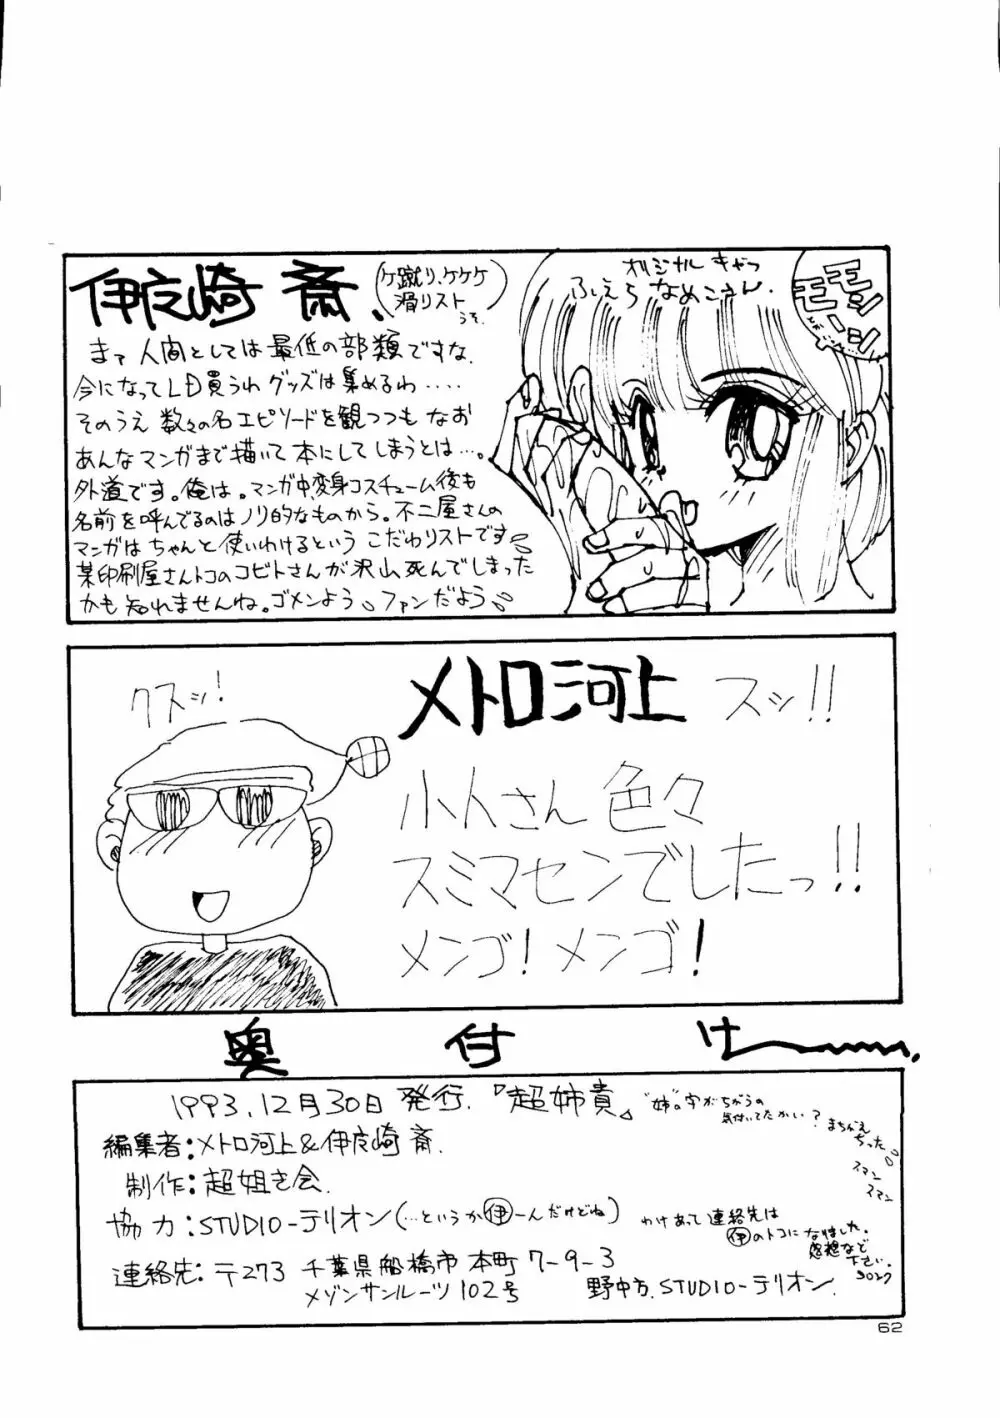 伊良崎 斎、
(ケ蹴り、ケケケ
滑リスト
うそ。)
オリジナル キャラ
ふえら なめこさん.
モシ
モーシ
まず 人間としては 最低の部類ですな.
今になってLD買うわ グッズは集めるわ‥‥
そのうえ 数々の名エピソードを観つつも なお
あんなマンガまで描いて本にしてしまうとは…。
外道です。俺は。マンガ中変身コスチューム後も
名前を呼んでるのはノリ的なものから。不二屋さんの
マンガはちゃんと使いわけるという こだわリストです。
某印刷屋さんトコのコビトさんが沢山死んでしまった
かも知れませんね。ゴメンよう。ファンだよう。
クスッ!
メトロ河上 スッ!!
小人さん 色々
スミマセンでしたっ!!
メンゴ! メンゴ!
奥付け
1993.12月30日 発行.『超姉貴』
"姉"の字がちがうの
気付いてたかい?
まちがえ
ちった。
スマン
スマン
編集者:メトロ河上&伊良崎 斎.
制作:超姐き会.
協力:STUDIO-テリオン(…というか㋑一んだけどね)
わけあって連絡先は
のトコになりました。
感想など
下さい。
連絡先:〒273 千葉県船橋市 本町 7-9-3
メゾンサンルーツ102号 野中方.STUDIO-テリオン.
62